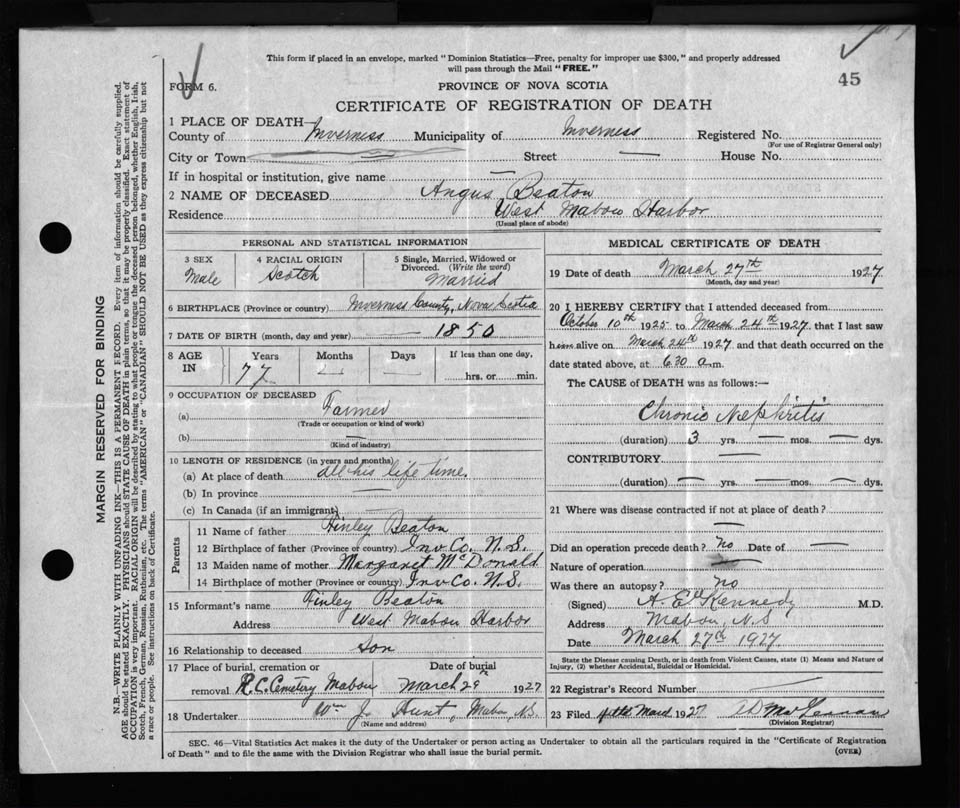 This form if placed in an envelope, marked "Dominion Statistics—Free, penalty for improper use $300," and properly addressed
will pass through the Mail "FREE."
45
FORM 6.
PROVINCE OF NOVA SCOTIA
CERTIFICATE OF REGISTRATION OF DEATH
1 PLACE OF DEATH—
County of Inverness Municipality of Inverness Registered No.
(For use of Registrar General only)
City or Town Street — House No.
If in hospital or institution, give name —
2 NAME OF DECEASED Angus Beaton
Residence West Mabou Harbor
(Usual place of abode)
PERSONAL AND STATISTICAL INFORMATION
3 SEX Male
4 RACIAL ORIGIN Scotch
5 Single, Married, Widowed or
Divorced. (Write the word)
Married
6 BIRTHPLACE (Province or country) Inverness County, Nova Scotia
7 DATE OF BIRTH (month, day and year) — 1850
8 AGE IN Years 77 Months — Days — If less than one day,
hrs. or min.
9 OCCUPATION OF DECEASED
(a) Farmer
(Trade or occupation or kind of work)
(b) —
(Kind of industry)
10 LENGTH OF RESIDENCE (in years and months)
(a) At place of death all his life time.
(b) In province —
(c) In Canada (if an immigrant)
Parents
11 Name of father Finley Beaton
12 Birthplace of father (Province or country) Inv. Co. N.S.
13 Maiden name of mother Margaret McDonald
14 Birthplace of mother (Province or country) Inv Co. N.S.
15 Informant's name Finley Beaton
Address West Mabou Harbor
16 Relationship to deceased Son
17 Place of burial, cremation or Date of burial
removal R.C. Cemetery Mabou March 29th 1927
18 Undertaker Wm J. Hunt, Mabou, N.S.
(Name and address)
MEDICAL CERTIFICATE OF DEATH
19 Date of death March 27th 1927
(Month, day and year)
20 I HEREBY CERTIFY that I attended deceased from
October 10th 1925 to March 24th 1927, that I last saw
him alive on March 24th 1927 and that death occurred on the
date stated above, at 6.30 a.m.
The CAUSE of DEATH was as follows:—
Chronic Nephritis
(duration) 3 yrs. — mos. — dys.
CONTRIBUTORY —
(duration) — yrs. — mos. — dys.
21 Where was disease contracted if not at place of death?
—
Did an operation precede death? No Date of —
Nature of operation
Was there an autopsy? No
(Signed) A. E. Kennedy M.D.
Address Mabou, N.S
Date March 27th 1927
State the Disease causing Death, or in death from Violent Causes, state (1) Means and Nature of
Injury, (2) whether Accidental, Suicidal or Homicidal.
22 Registrar's Record Number
23 Filed March 1927
(Division Registrar)
SEC. 46—Vital Statistics Act makes it the duty of the Undertaker or person acting as Undertaker to obtain all the particulars required in the "Certificate of Registration
of Death" and to file the same with the Division Registrar who shall issue the burial permit. (OVER)
MARGIN RESERVED FOR BINDING
N.B.—WRITE PLAINLY WITH UNFADING INK—THIS IS A PERMANENT RECORD. Every item of information should be carefully supplied.
AGE should be stated EXACTLY. PHYSICIANS should STATE CAUSE OF DEATH in plain terms, so that it may be properly classified. Exact statement of
OCCUPATION is very important. RACIAL ORIGIN will be described by stating to what people or tongue the deceased person belonged, whether English, Irish,
Scotch, French, German, Russian, Ruthenian, etc. The terms "AMERICAN" or "CANADIAN" SHOULD NOT BE USED as they express citizenship but not
a race or people. See instructions on back of Certificate.